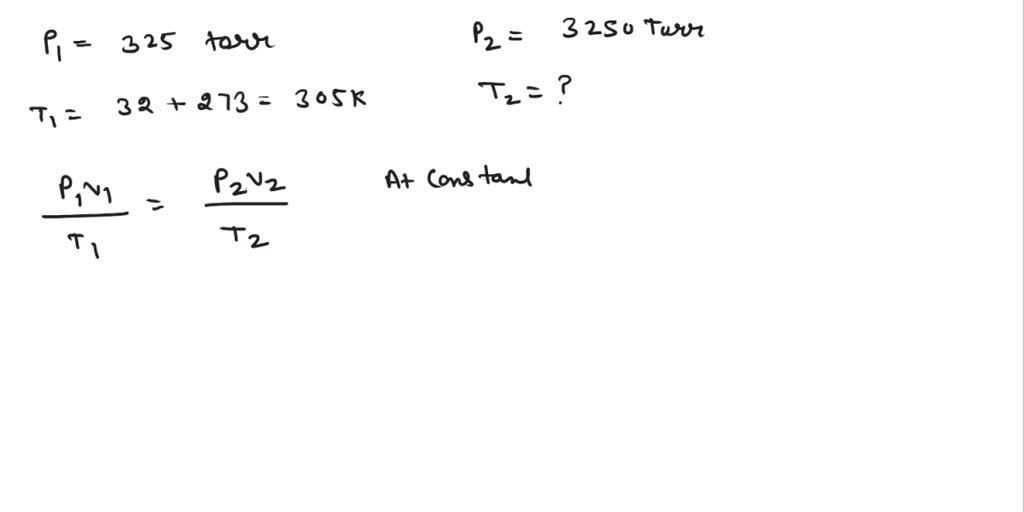 P₁ = 325 torr
P₂ = 3250 Torr
T₁ = 32 + 273 = 305K
T₂ = ?
P₁V₁/T₁ = P₂V₂/T₂ At Constant